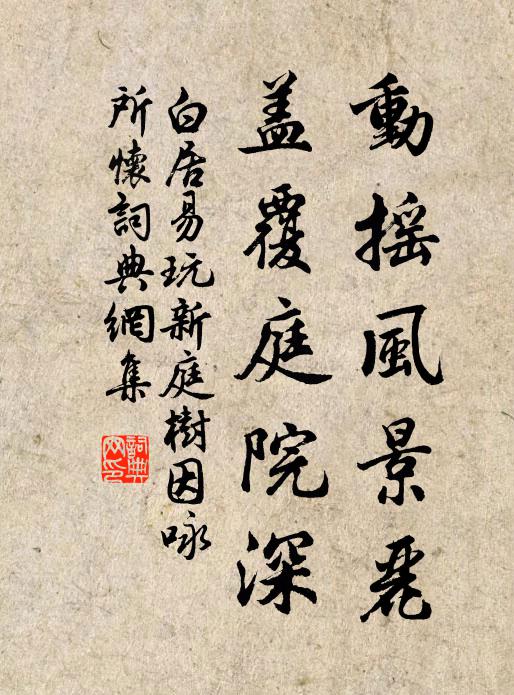 動搖風景麗
蓋覆庭院深
白居易玩新庭樹因咏
所懷詞典網集
詞典
网印